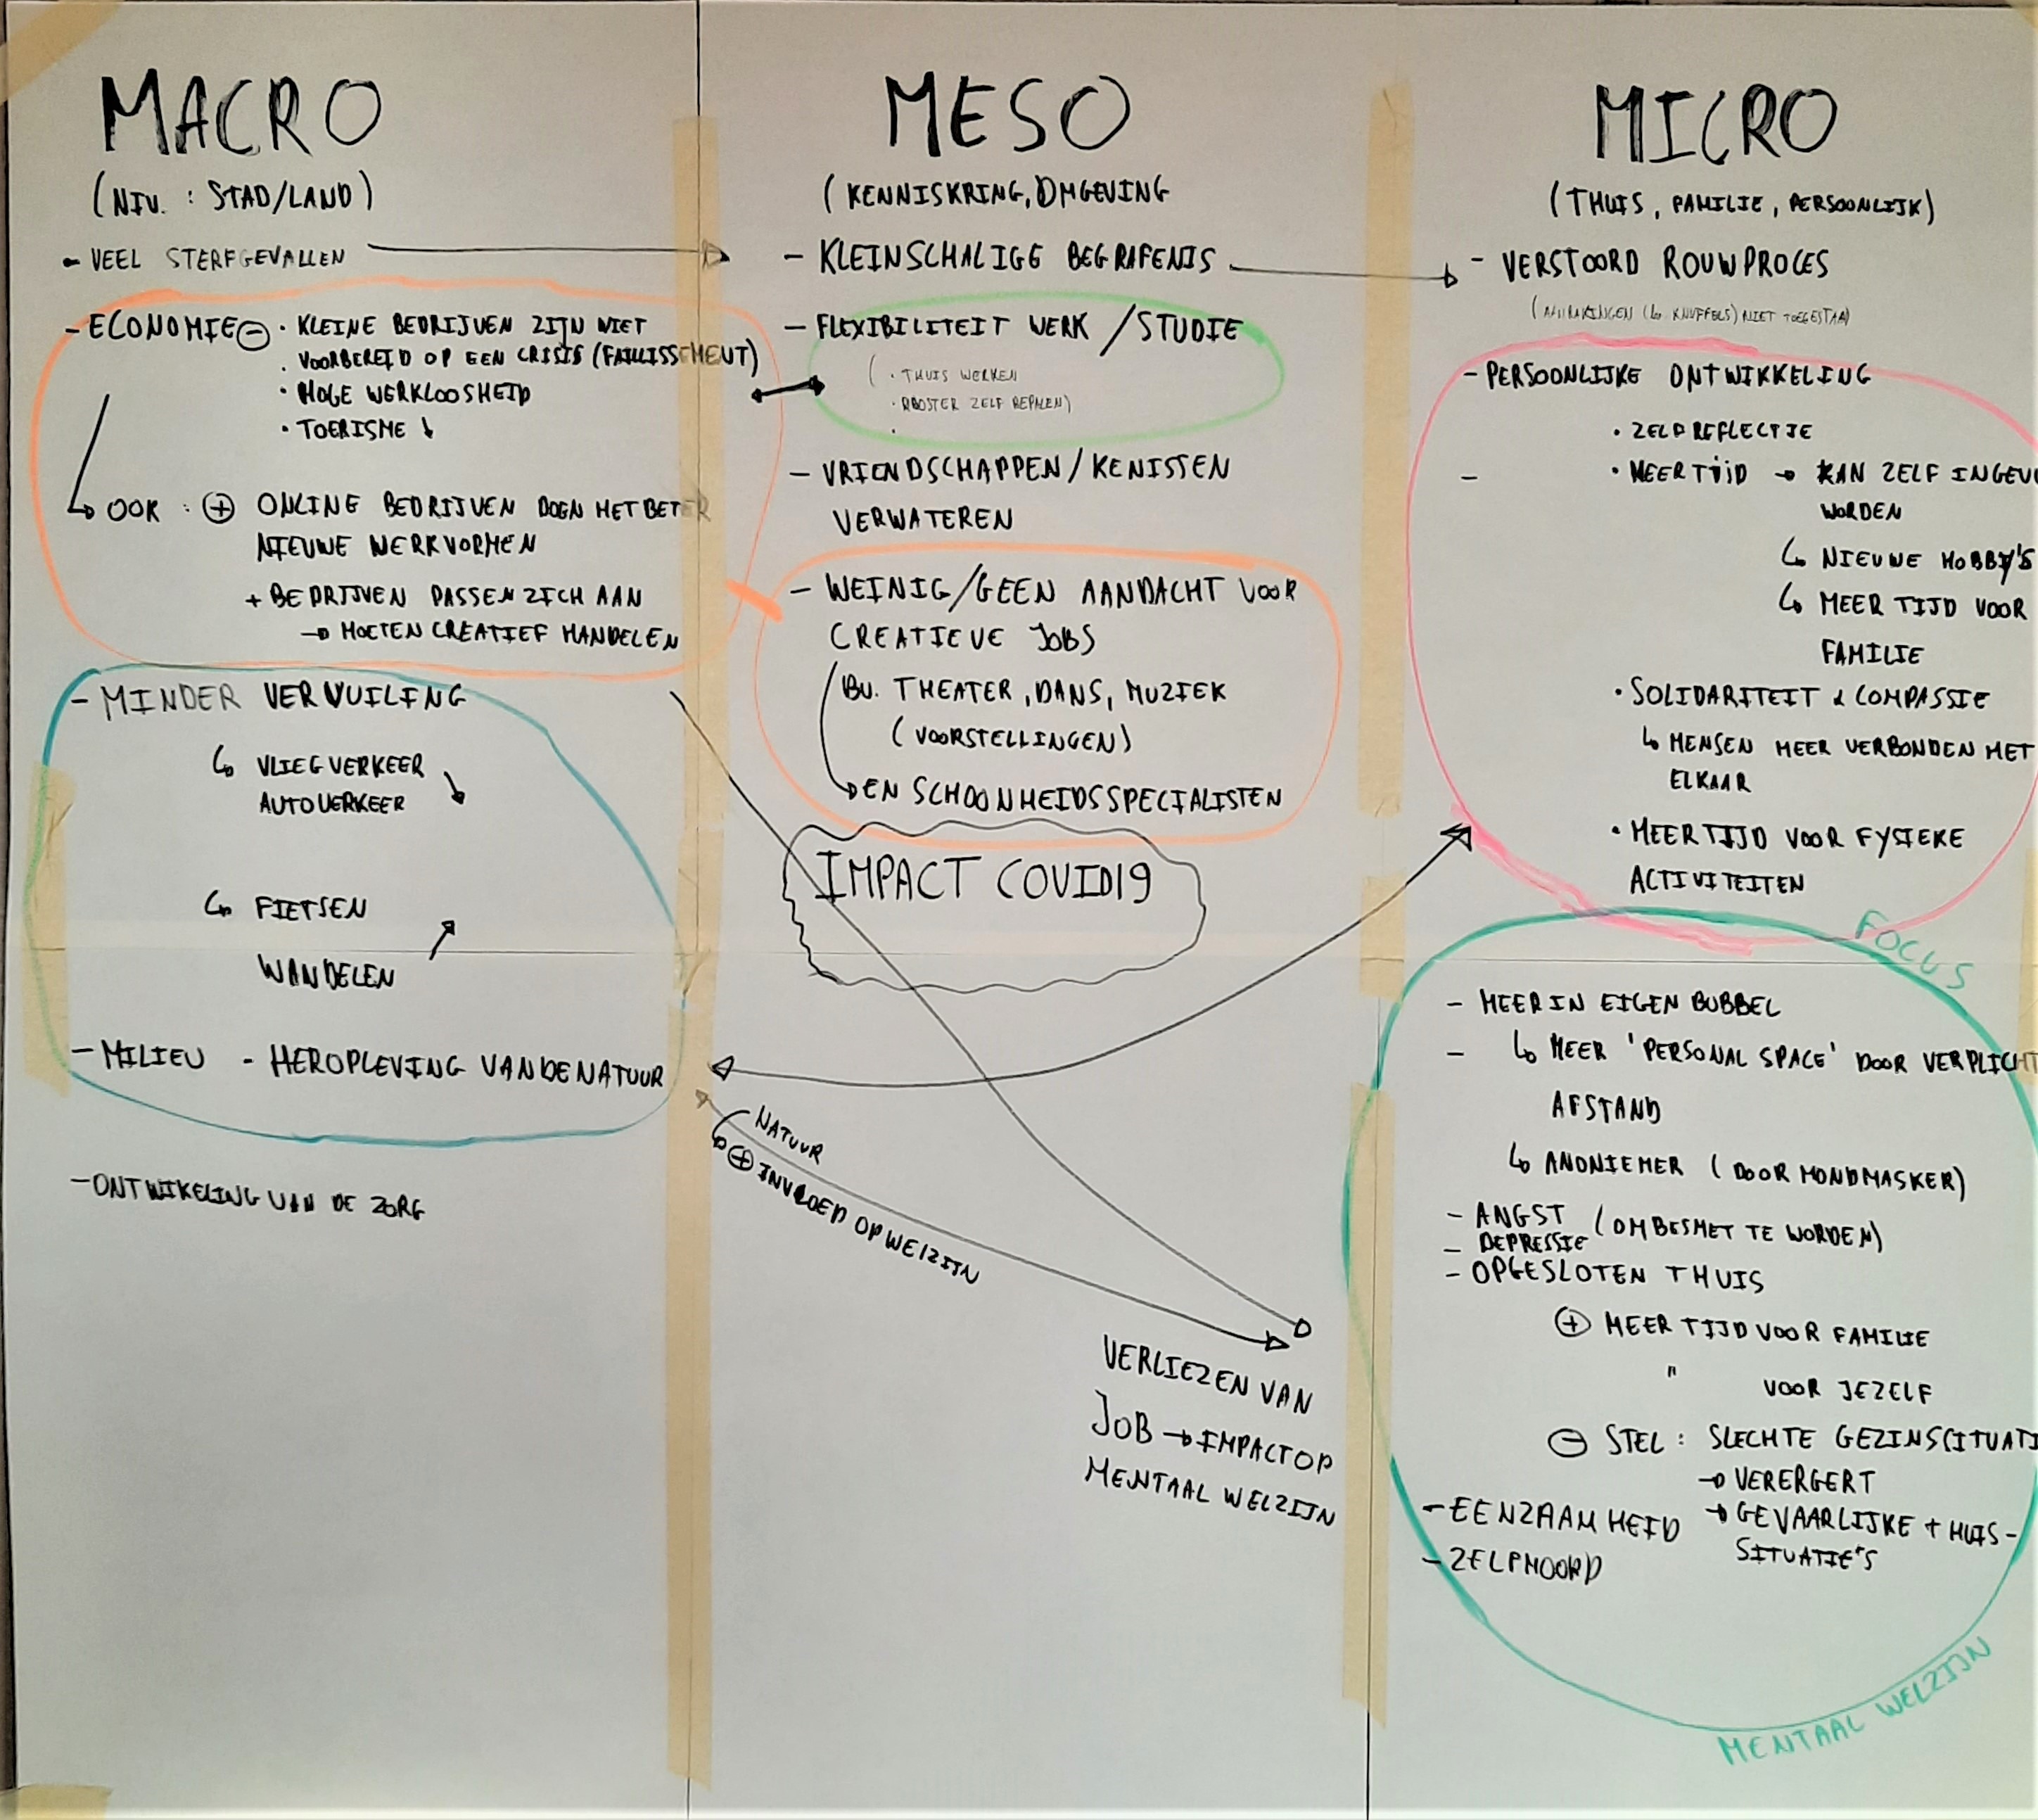 MACRO
(NIV. : STAD/LAND)
- VEEL STERFGEVALLEN
- ECONOMIE ⊖ · KLEINE BEDRIJVEN ZIJN NIET
· VOORBEREID OP EEN CRISIS (FAILLISSEMENT)
· HOGE WERKLOOSHEID
· TOERISME ↓
↳ OOK : ⊕ ONLINE BEDRIJVEN DOEN HET BETER
NIEUWE WERKVORMEN
+ BEDRIJVEN PASSEN ZICH AAN
→ MOETEN CREATIEF HANDELEN
- MINDER VERVUILING
↳ VLIEGVERKEER ↘
AUTOVERKEER
↳ FIETSEN
WANDELEN ↗
- MILIEU - HEROPLEVING VAN DE NATUUR
- ONTWIKELING VAN DE ZORG
MESO
(KENNISKRING, OMGEVING
- KLEINSCHALIGE BEGRAFENIS
- FLEXIBILITEIT WERK / STUDIE
( · THUIS WERKEN
· ROOSTER ZELF BEPALEN)
·
- VRIENDSCHAPPEN/KENISSEN
VERWATEREN
- WEINIG/GEEN AANDACHT VOOR
CREATIEVE JOBS
BV. THEATER, DANS, MUZIEK
(VOORSTELLINGEN)
→ EN SCHOONHEIDSSPECIALISTEN
IMPACT COVID19
NATUUR
↳ ⊕ INVLOED OP WELZIJN
VERLIEZEN VAN
JOB → IMPACT OP
MENTAAL WELZIJN
MICRO
(THUIS, FAMILIE, PERSOONLIJK)
- VERSTOORD ROUWPROCES
(AANRAKINGEN KNUFFELS) NIET TOEGESTAAN)
- PERSOONLIJKE ONTWIKKELING
· ZELFREFLECTIE
- · MEER TIJD → KAN ZELF INGEVU
WORDEN
↳ NIEUWE HOBBY'S
↳ MEER TIJD VOOR
FAMILIE
· SOLIDARITEIT & COMPASSIE
↳ MENSEN MEER VERBONDEN MET
ELKAAR
· MEER TIJD VOOR FYSIEKE
ACTIVITEITEN
FOCUS
- MEER IN EIGEN BUBBEL
- ↳ MEER 'PERSONAL SPACE' DOOR VERPLICHT
AFSTAND
↳ ANONIEMER (DOOR MONDMASKER)
- ANGST (OM BESMET TE WORDEN)
- DEPRESSIE
- OPGESLOTEN THUIS
⊕ MEER TIJD VOOR FAMILIE
" VOOR JEZELF
⊖ STEL : SLECHTE GEZINSCITUATI
→ VERERGERT
- EENZAAMHEID → GEVAARLIJKE + HUIS-
SITUATIE'S
- ZELFMOORD
MENTAAL WELZIJN